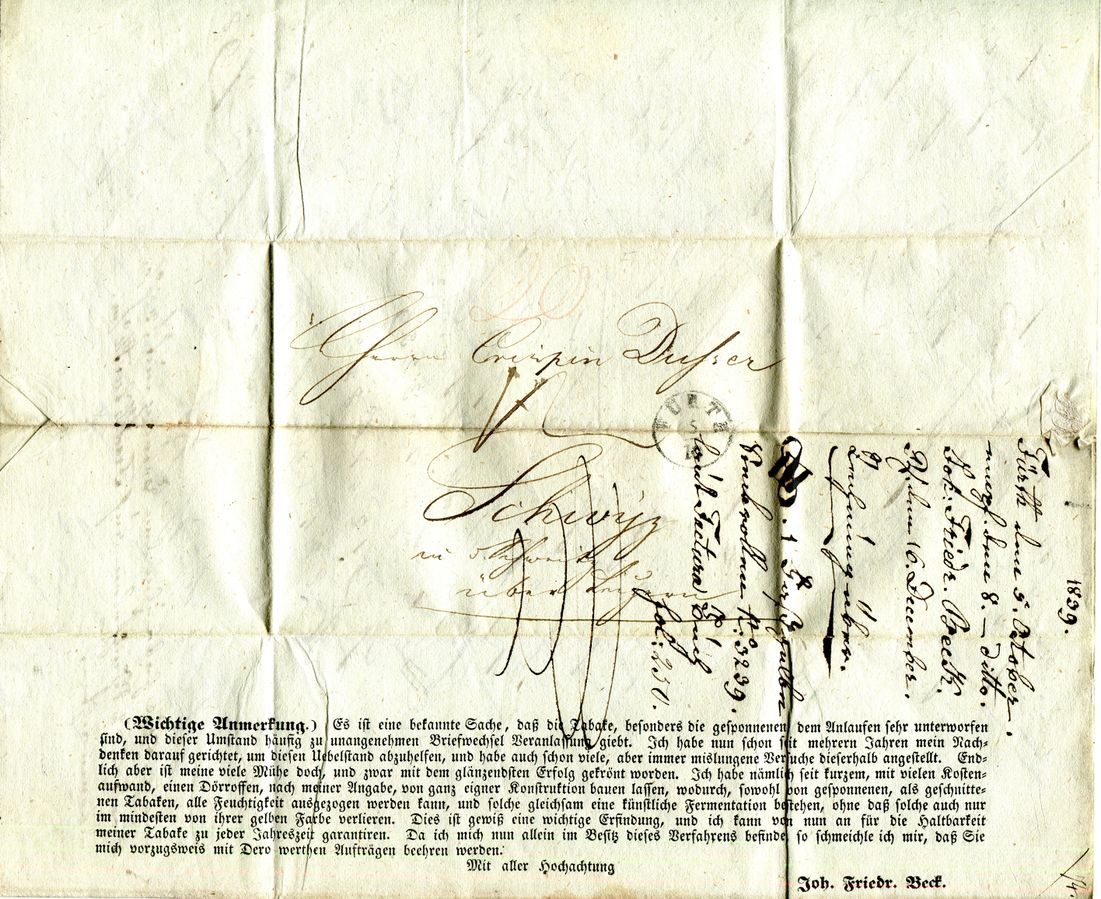 20
Herrn Crispin Dusser
Schwÿz
in Schweitz
über Luzern
FÜRTH
1839.
Fürth den 5. October.
empf. den 8. — ditto.
Joh. Friedr. Beck.
16. December.
No. 3239.
laut Factura Buch
fol: 230.
(Wichtige Anmerkung.) Es ist eine bekannte Sache, daß die Tabake, besonders die gesponnenen, dem Anlaufen sehr unterworfen
sind, und dieser Umstand häufig zu unangenehmen Briefwechsel Veranlassung giebt. Ich habe nun schon seit mehrern Jahren mein Nach-
denken darauf gerichtet, um diesen Uebelstand abzuhelfen, und habe auch schon viele, aber immer mislungene Versuche dieserhalb angestellt. End-
lich aber ist meine viele Mühe doch, und zwar mit dem glänzendsten Erfolg gekrönt worden. Ich habe nämlich seit kurzem, mit vielen Kosten-
aufwand, einen Dörroffen, nach meiner Angabe, von ganz eigner Konstruktion bauen lassen, wodurch, sowohl von gesponnenen, als geschnitte-
nen Tabaken, alle Feuchtigkeit ausgezogen werden kann, und solche gleichsam eine künstliche Fermentation bestehen, ohne daß solche auch nur
im mindesten von ihrer gelben Farbe verlieren. Dies ist gewiß eine wichtige Erfindung, und ich kann von nun an für die Haltbarkeit
meiner Tabake zu jeder Jahreszeit garantiren. Da ich mich nun allein im Besitz dieses Verfahrens befinde, so schmeichle ich mir, daß Sie
mich vorzugsweis mit Dero werthen Aufträgen beehren werden.
Mit aller Hochachtung
Joh. Friedr. Beck.